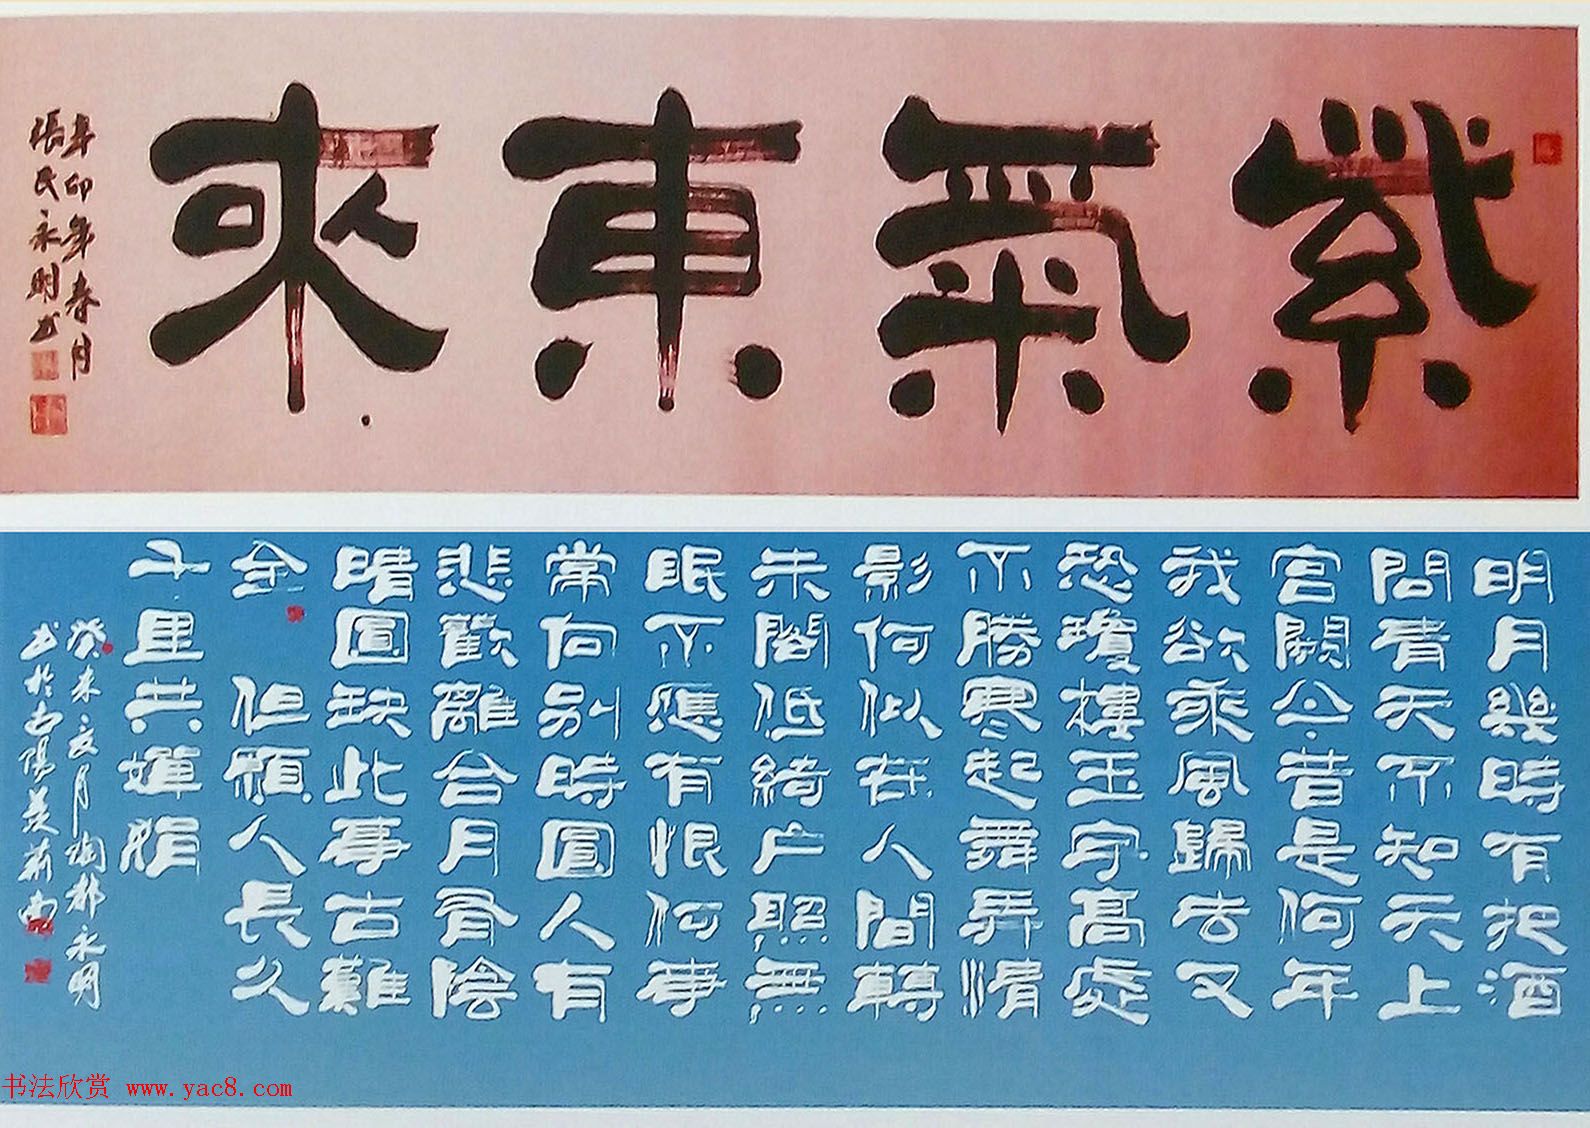 紫氣東來
辛卯年春月
張氏永明书
明月幾時有把酒
問青天不知天上
宫闕今昔是何年
我欲乘風歸去又
恐瓊樓玉宇髙處
不勝寒起舞弄清
影何似在人間轉
朱閣低綺户照無
眠不應有恨何事
常向别時圓人有
悲歡離合月有陰
晴圓缺此事古難
全 但願人長久
千里共嬋娟
癸未月陶都永明
书於古陽羡荊南
书法欣赏 www.yac8.com